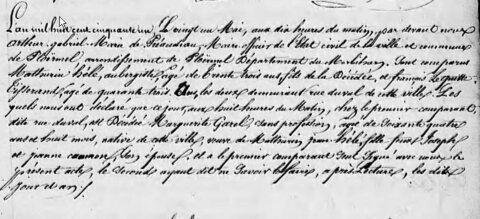 L'an mil huit cent cinquante un, Le vingt un Mai, aux dix heures du matin, par devant nous
arthur, gabriel, Marin de Maire officier de l'Etat civil de la ville et commune
de Ploërmel, arrondissement de Ploërmel Département du Morbihan, Sont comparus
Mathurin Hélé, aubergiste, agé de trente trois ans, fils de la Décédée, et françois
agé de quarante trois ans, les deux demeurant rue duval de cette ville, Les
quels nous ont déclaré que ce jour, aux huit heures du Matin, chez le premier comparant,
dite rue duval, est Décédée Marguerite Garel, Sans profession, agée de Soixante quatre
ans et huit mois, native de cette ville, veuve de Mathurin jean hélé, fille feus Joseph
et jeanne Son épouse, et a le premier comparant Seul Signé avec nous le
présent acte, le Second ayant dit ne Savoir le faire, après Lecture, les dits
jour et an ./.